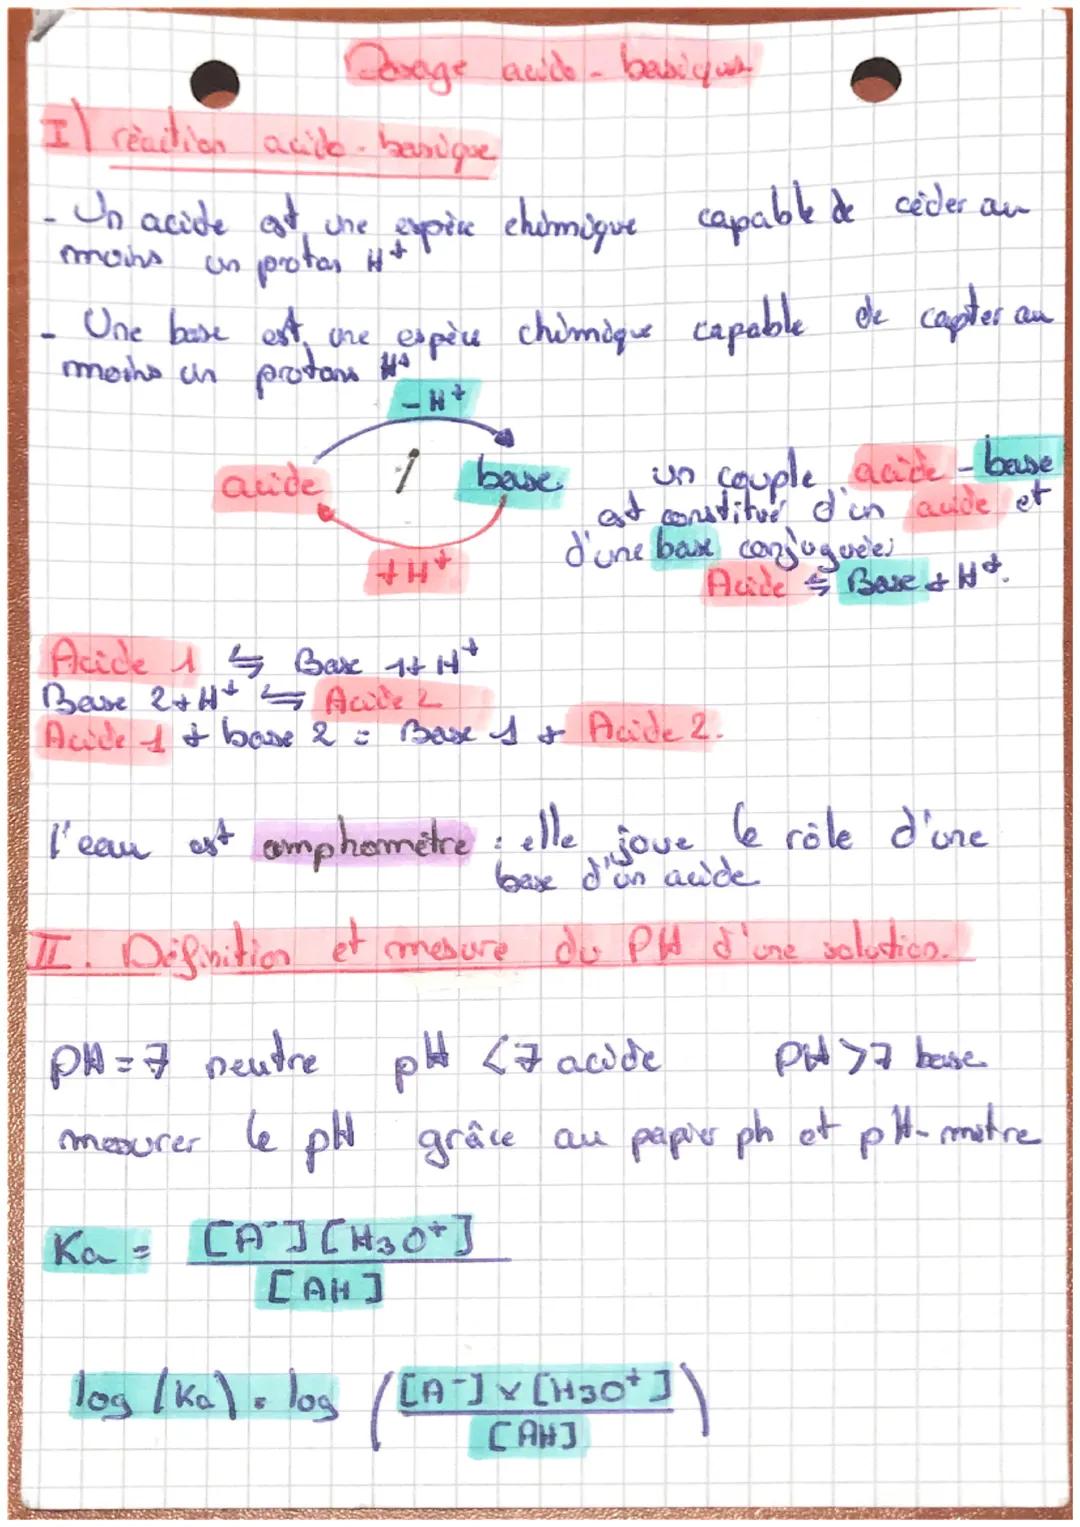 Dosage acido-basiques
I) réaction acido-basique
- Un acide est une espèce chimique capable de céder au
moins un proton H+
- Une base est une espèce chimique capable de capter au
moins un protons H+
- H+
acide / base
+ H+
un couple acide-base
est constitué d'un acide et
d'une base conjuguées
Acide ⇆ Base + H+.
Acide 1 ⇆ Base 1 + H+
Base 2 + H+ ⇆ Acide 2
Acide 1 + base 2 = Base 1 + Acide 2.
l'eau est amphomètre : elle joue le rôle d'une
base d'un acide
II. Définition et mesure du PH d'une solution.
PH = 7 neutre pH < 7 acide PH > 7 base
mesurer le pH grâce au papier ph et pH-mètre
Ka = [A-] [H3O+]
[AH]
log (Ka) = log ([A-] x [H3O+])
[AH]